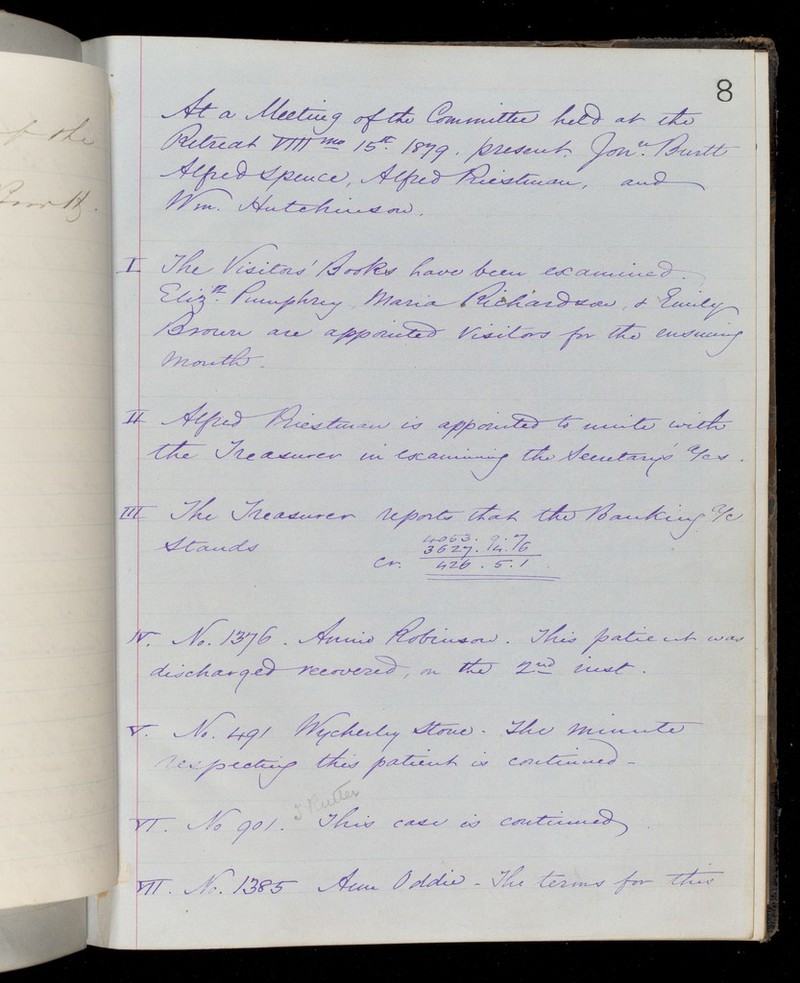 8
At a Meeting of the Committee held at the
Retreat VIII mo 15th. 1879. present. Jonn. Burtt
Alfred Spence, Alfred Priestman, and
Wm. Hutchinson.
I The Visitors' Books have been examined.
Elizth. Pumphrey Maria Richardson, & Emily
Brown are appointed Visitors for the ensuing
month.
II Alfred Priestman is appointed to unite with
the Treasurer in examining the Secretary's a/cs.
III The Treasurer reports that the Banking a/c
Stands
4053. 9. 7
3627. 14. 6
Cr. 426. 5. 1
IV. No. 1376. Annie Robinson. This patient was
discharged recovered, on the 2nd inst.
V. No. 491 Wycherley Stone. The minute
respecting this patient is continued-
J Rutter
VI. No 901. This case is continued.
VII. No. 1385 Ann Oddie - The terms for this
the